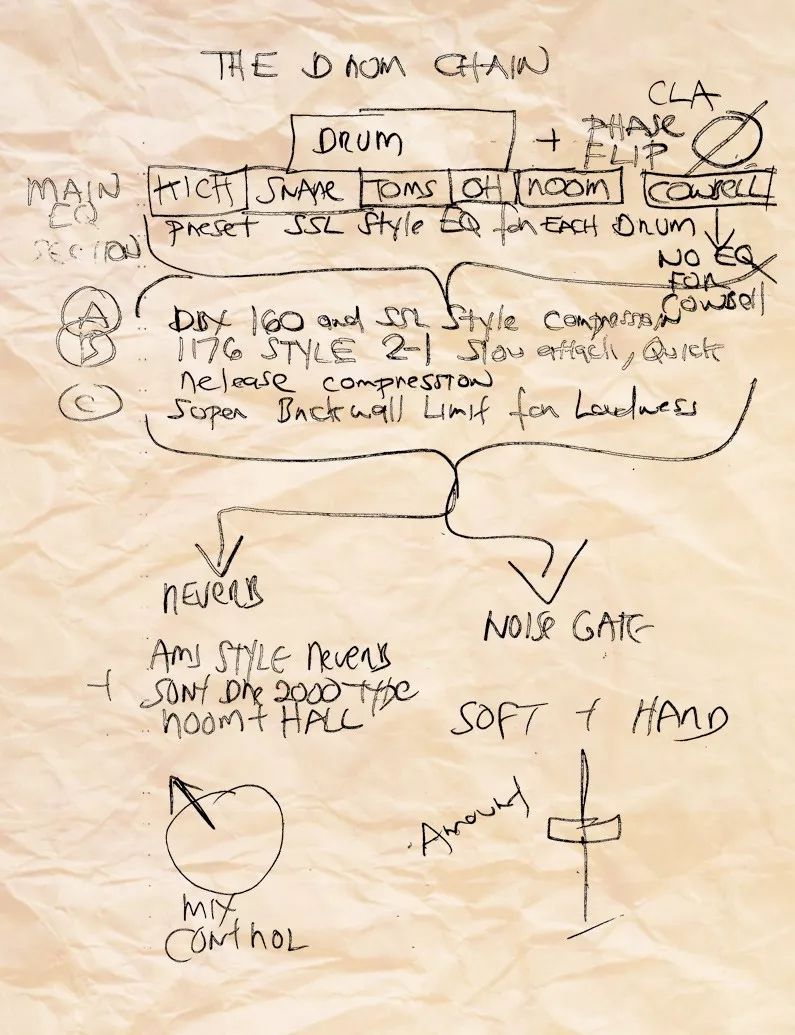 THE DRUM CHAIN
CLA
DRUM + PHASE FLIP Ø
MAIN EQ SECTION
KICK SNARE TOMS OH ROOM COWBELL
Preset SSL Style EQ for EACH Drum
NO EQ
FOR
COWBell
A DBX 160 and SSL Style compression
B 1176 STYLE 2-1 Slow attack, Quick
Release compression
C Super Brickwall Limit for Loudness
REVERB
NOISE GATE
AMS STYLE REVERB
+ SONY DRE 2000 TYPE
ROOM + HALL
SOFT + HARD
Amount
MIX
CONTROL